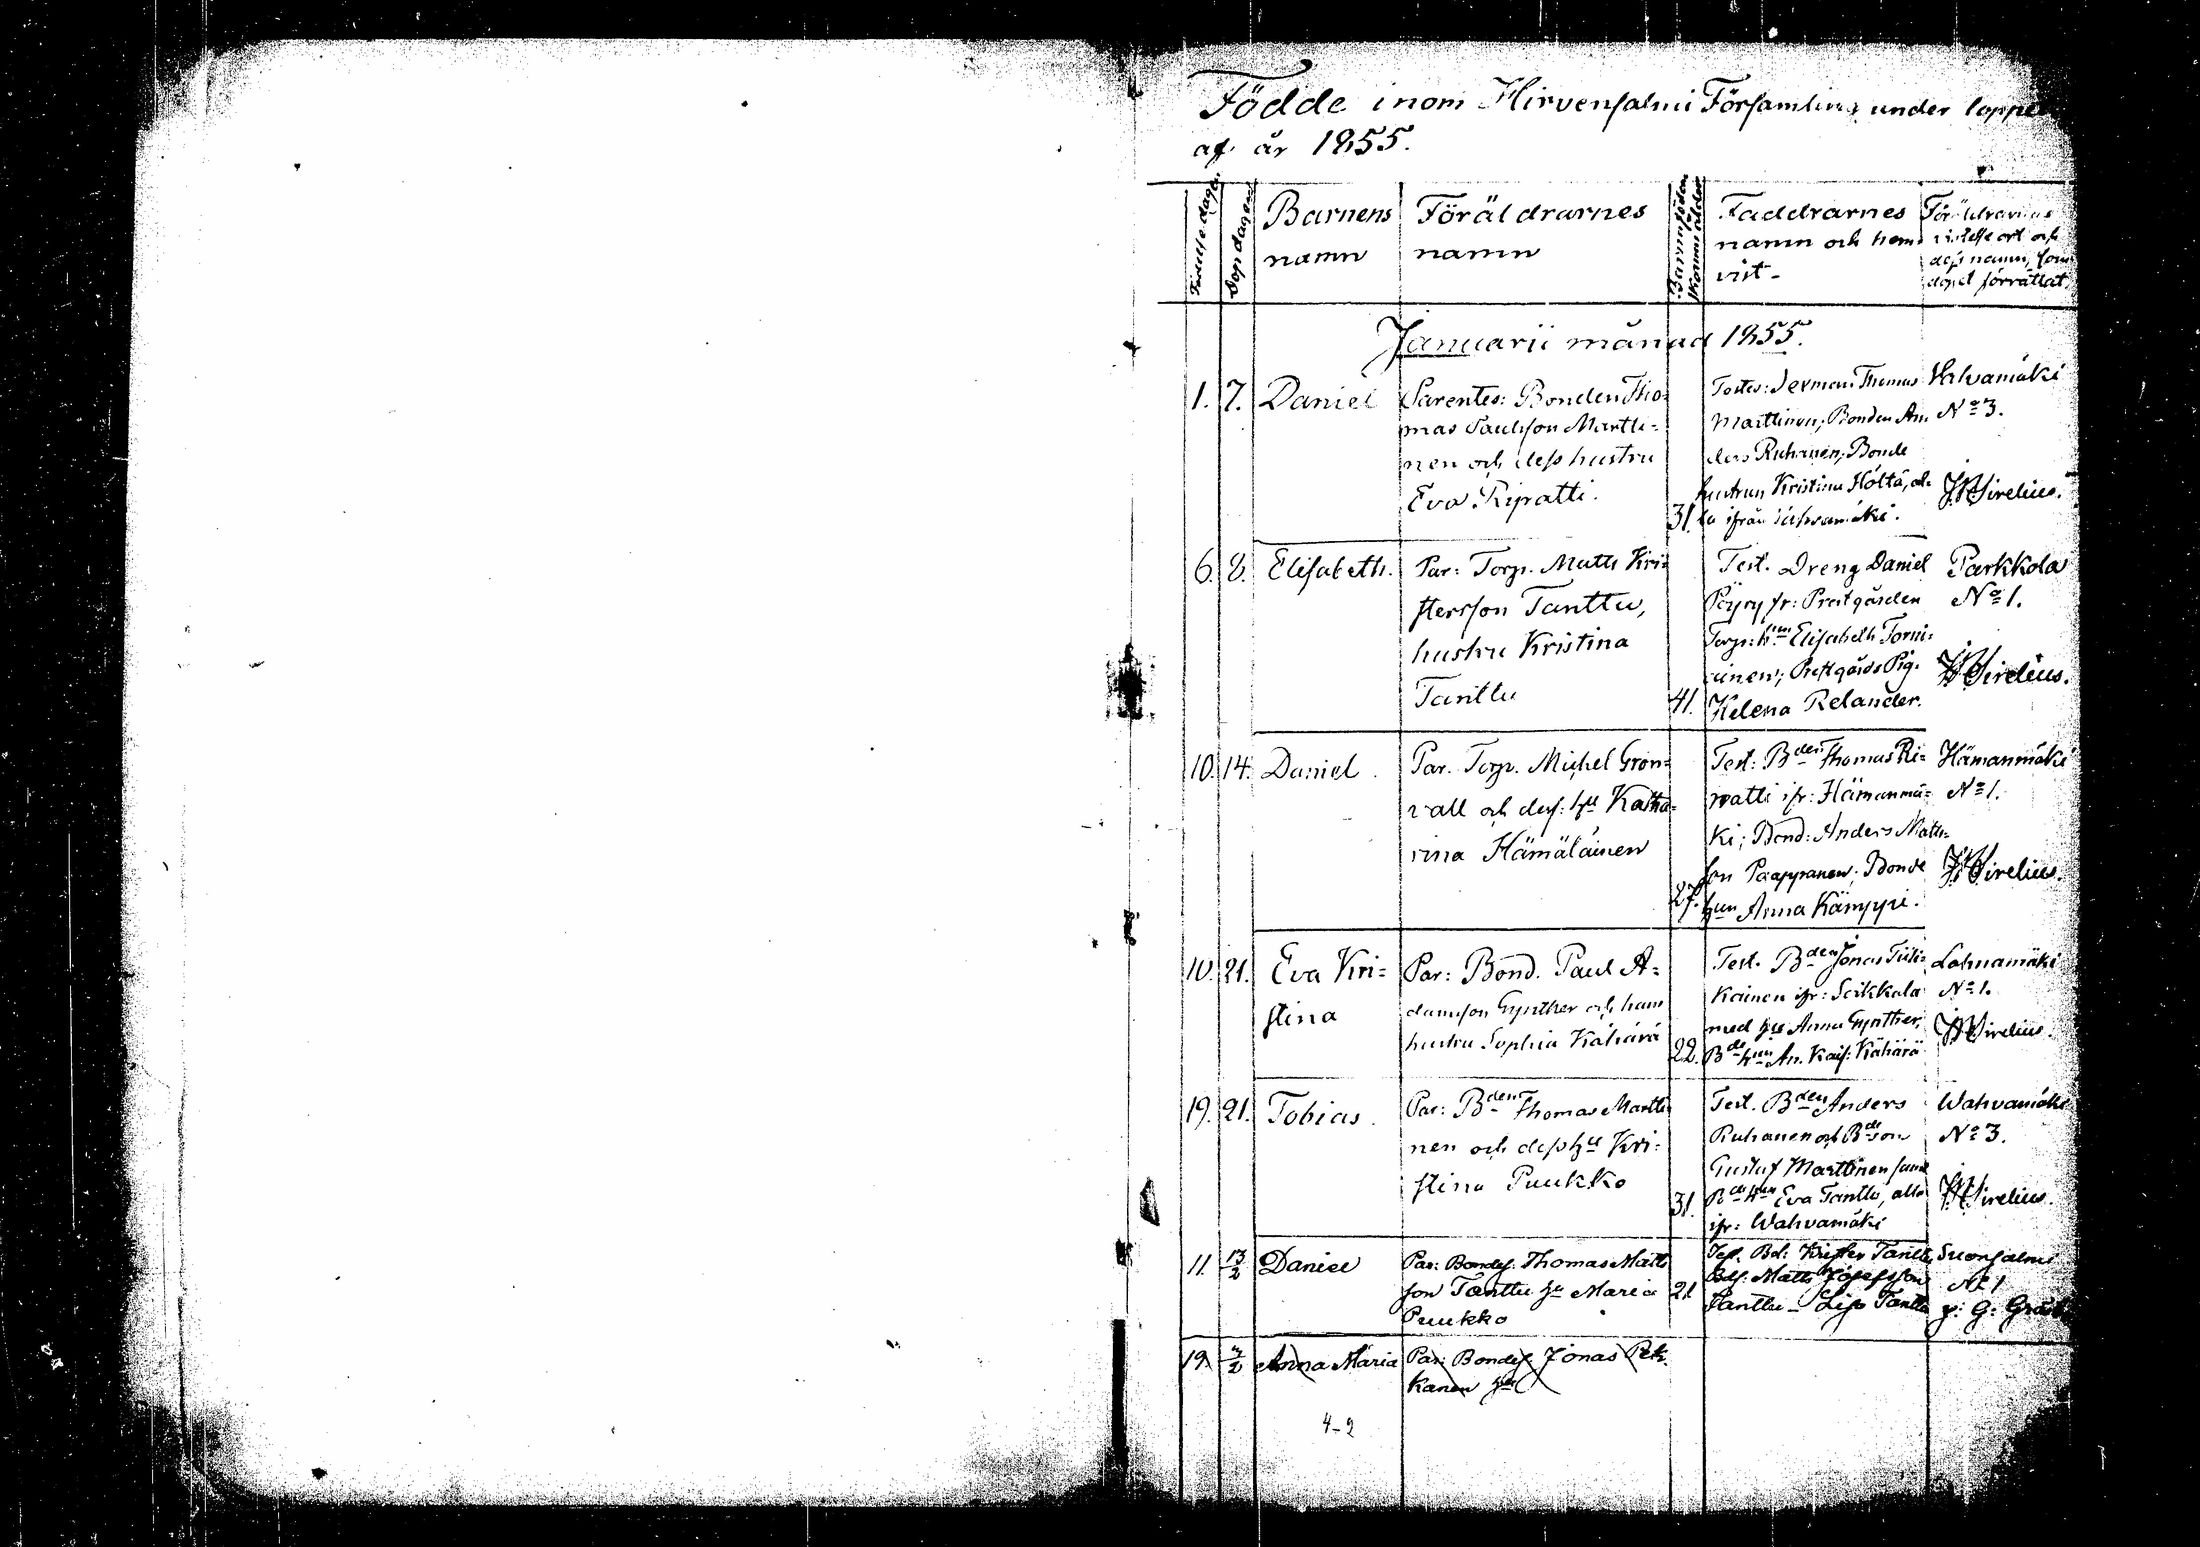 Födde inom Hirvensalmi Församling under loppet
af år 1855.
Födelse dagen
Dop dagen
Barnens
namn
Föräldrarnes
namn
Barnsföder:
skans ålder
Faddrarnes
namn och hem
vist -
Föräldrarnas
vistelse ort och
dess namn, som
dopet förrättat
Januarii månad 1855.
1. 7. Daniel
Parentes: Bonden Tho=
mas Paulsson Martti=
nen och dess hustru
Eva Ripatti.
31.
Testes: Thomas
Marttinen; Bonden An.
ders Ruhanen; Bonde
hustrun Kristina Höltä, al-
la ifrån Wahvamäki.
Wahvamäki
No 3.
Wirelius.
6. 8. Elisabeth.
Par: Torp. Matts Kri=
stersson Tanttu,
hustru Kristina
Tanttu
41.
Test. Dreng Daniel
Pöyry fr: Prestgården
Torp: hun Elisabeth Torni=
ainen; Prestgårds Pig.
Helena Relander.
Parkkola
No 1.
Wirelius.
10. 14. Daniel.
Par. Torp. Michel Grön=
vall och dess: hu Katha=
rina Hämäläinen
27.
Test: Bden Thomas Ri=
patti ifr: Hämanmä=
ki; Bond: Anders Matts=
son Paappanen; Bonde
hun Anna Kämppi.
Hämanmäki
No 1.
Wirelius.
10. 21. Eva Kri=
stina
Par: Bond. Paul A=
damsson Gynther och hans
hustru Sophia Kähärä
22.
Test. Bden Jonas Tiili=
kainen ifr: Seikkala
med hu Anna Gynther,
Bde hun An. Kais: Kähärä
Lahnamäki
No 1.
Wirelius.
19. 21. Tobias.
Par: Bden Thomas Martti
nen och dess hu Kri=
stina Puukko
31.
Test. Bden Anders
Ruhanen och Bde son
Gustaf Marttinen samt
Bde hun Eva Tanttu, alla
ifr: Wahvamäki
Wahvamäki
No 3.
Wirelius.
11. 13/2 Daniel
Par: Bondes. Thomas Matts
son Tanttu hu Maria
Puukko
21
Test. Bd: Krister Tanttu
Bds. Matts Josefsson
Tanttu - Liso Tanttu
Suonsalmi
No 1
g: G:
19. 2/2 Anna Maria
Par: Bondes. Jonas Pek.
kanen hu
4-2